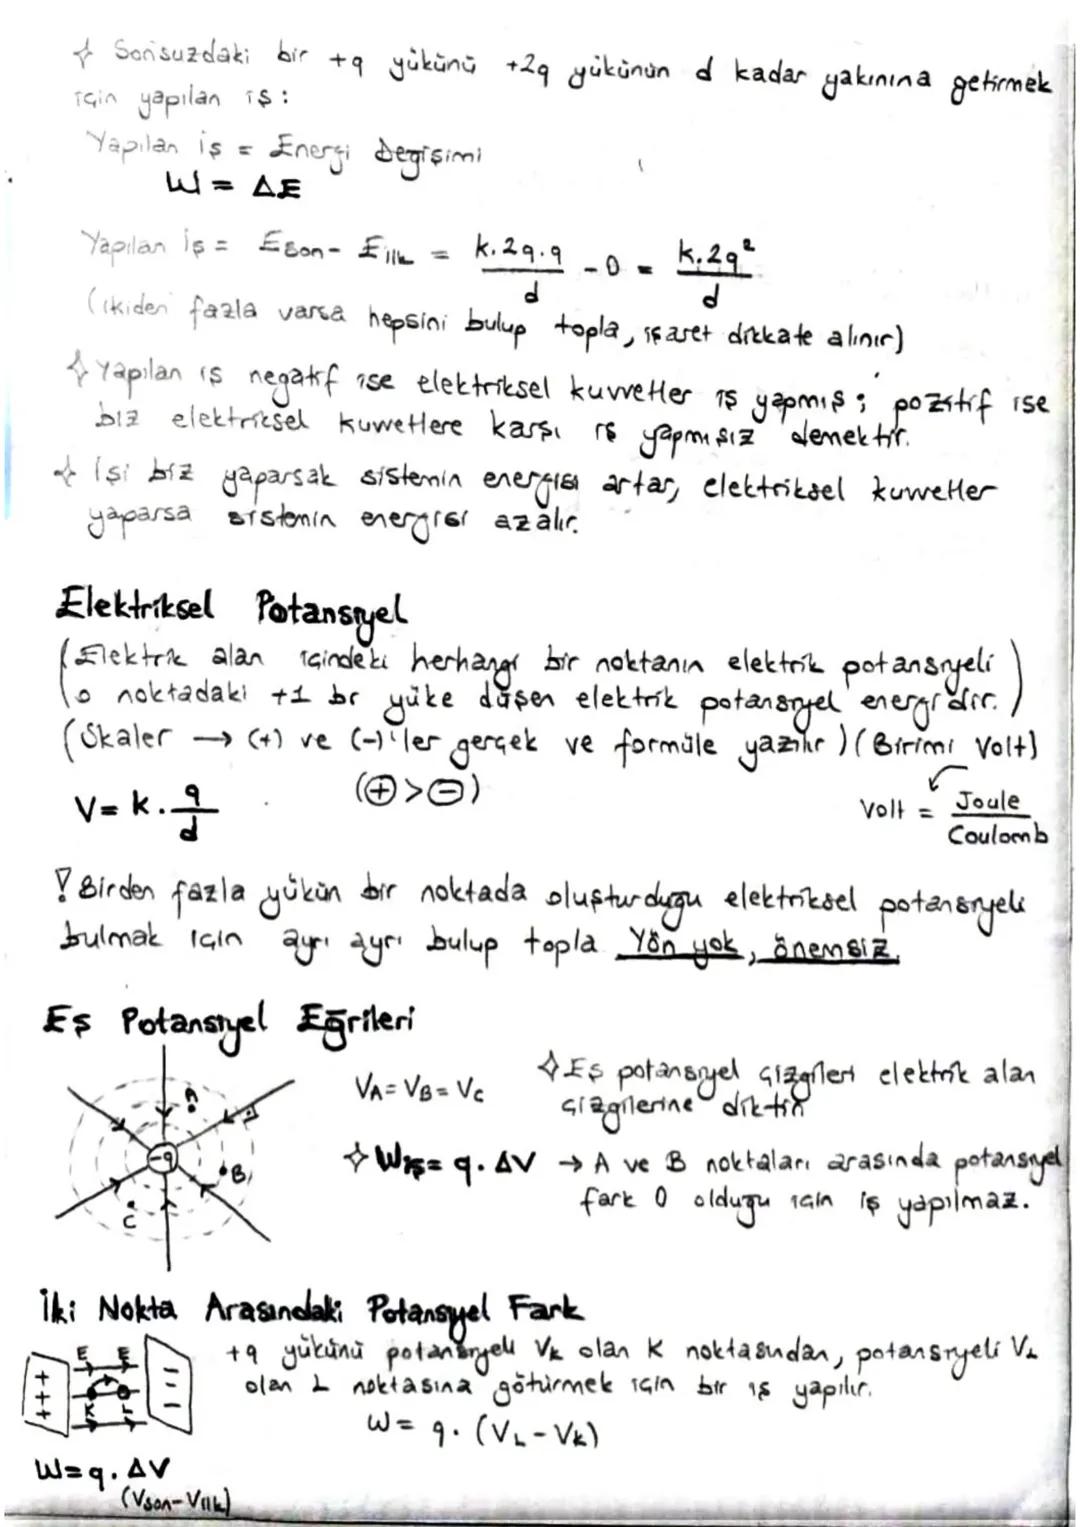 ✧ Sonsuzdaki bir +q yükünü +2q yükünün d kadar yakınına getirmek
için yapılan iş:
Yapılan iş = Enerji Değişimi
W = ΔE
Yapılan iş = Eson - Eilk = k.2q.q/d - 0 = k.2q²/d
(ikiden fazla varsa hepsini bulup topla, işaret dikkate alınır)
✧ Yapılan iş negatif ise elektriksel kuvvetler iş yapmış; pozitif ise
biz elektriksel kuvvetlere karşı iş yapmışız demektir.
✧ İşi biz yaparsak sistemin enerjisi artar, elektriksel kuvvetler
yaparsa sistemin enerjisi azalır.
Elektriksel Potansiyel
(Elektrik alan içindeki herhangi bir noktanın elektrik potansiyeli
o noktadaki +1 br yüke düşen elektrik potansiyel enerjidir.)
(Skaler → (+) ve (-)'ler gerçek ve formüle yazılır) (Birimi Volt)
V = k.q/d (⊕>⊖) Volt = Joule/Coulomb
! Birden fazla yükün bir noktada oluşturduğu elektriksel potansiyeli
bulmak için ayrı ayrı bulup topla Yön yok, önemsiz.
Eş Potansiyel Eğrileri
A
-q
B
C
VA = VB = VC
✧ Eş potansiyel çizgileri elektrik alan
çizgilerine diktir
✧ Wiş = q.ΔV → A ve B noktaları arasında potansiyel
fark 0 olduğu için iş yapılmaz.
İki Nokta Arasındaki Potansiyel Fark
E E
+ + +
K L
- - -
+q yükünü potansiyeli VK olan K noktasından, potansiyeli VL
olan L noktasına götürmek için bir iş yapılır.
W = q.(VL - VK)
W = q.ΔV
(Vson - Vilk)